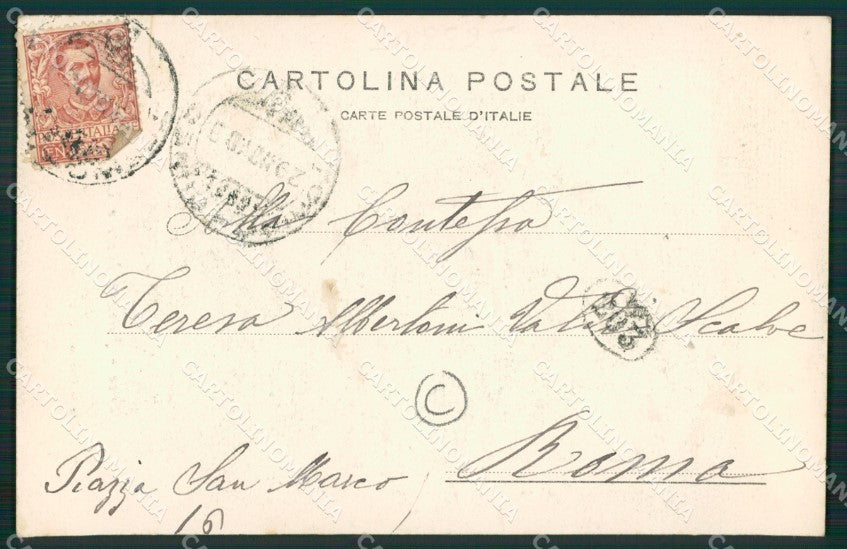 CARTOLINA POSTALE
CARTE POSTALE D'ITALIE
Alla Contessa
Teresa Albertoni
Roma
Piazza San Marco
16
C
CARTOLINOMANIA